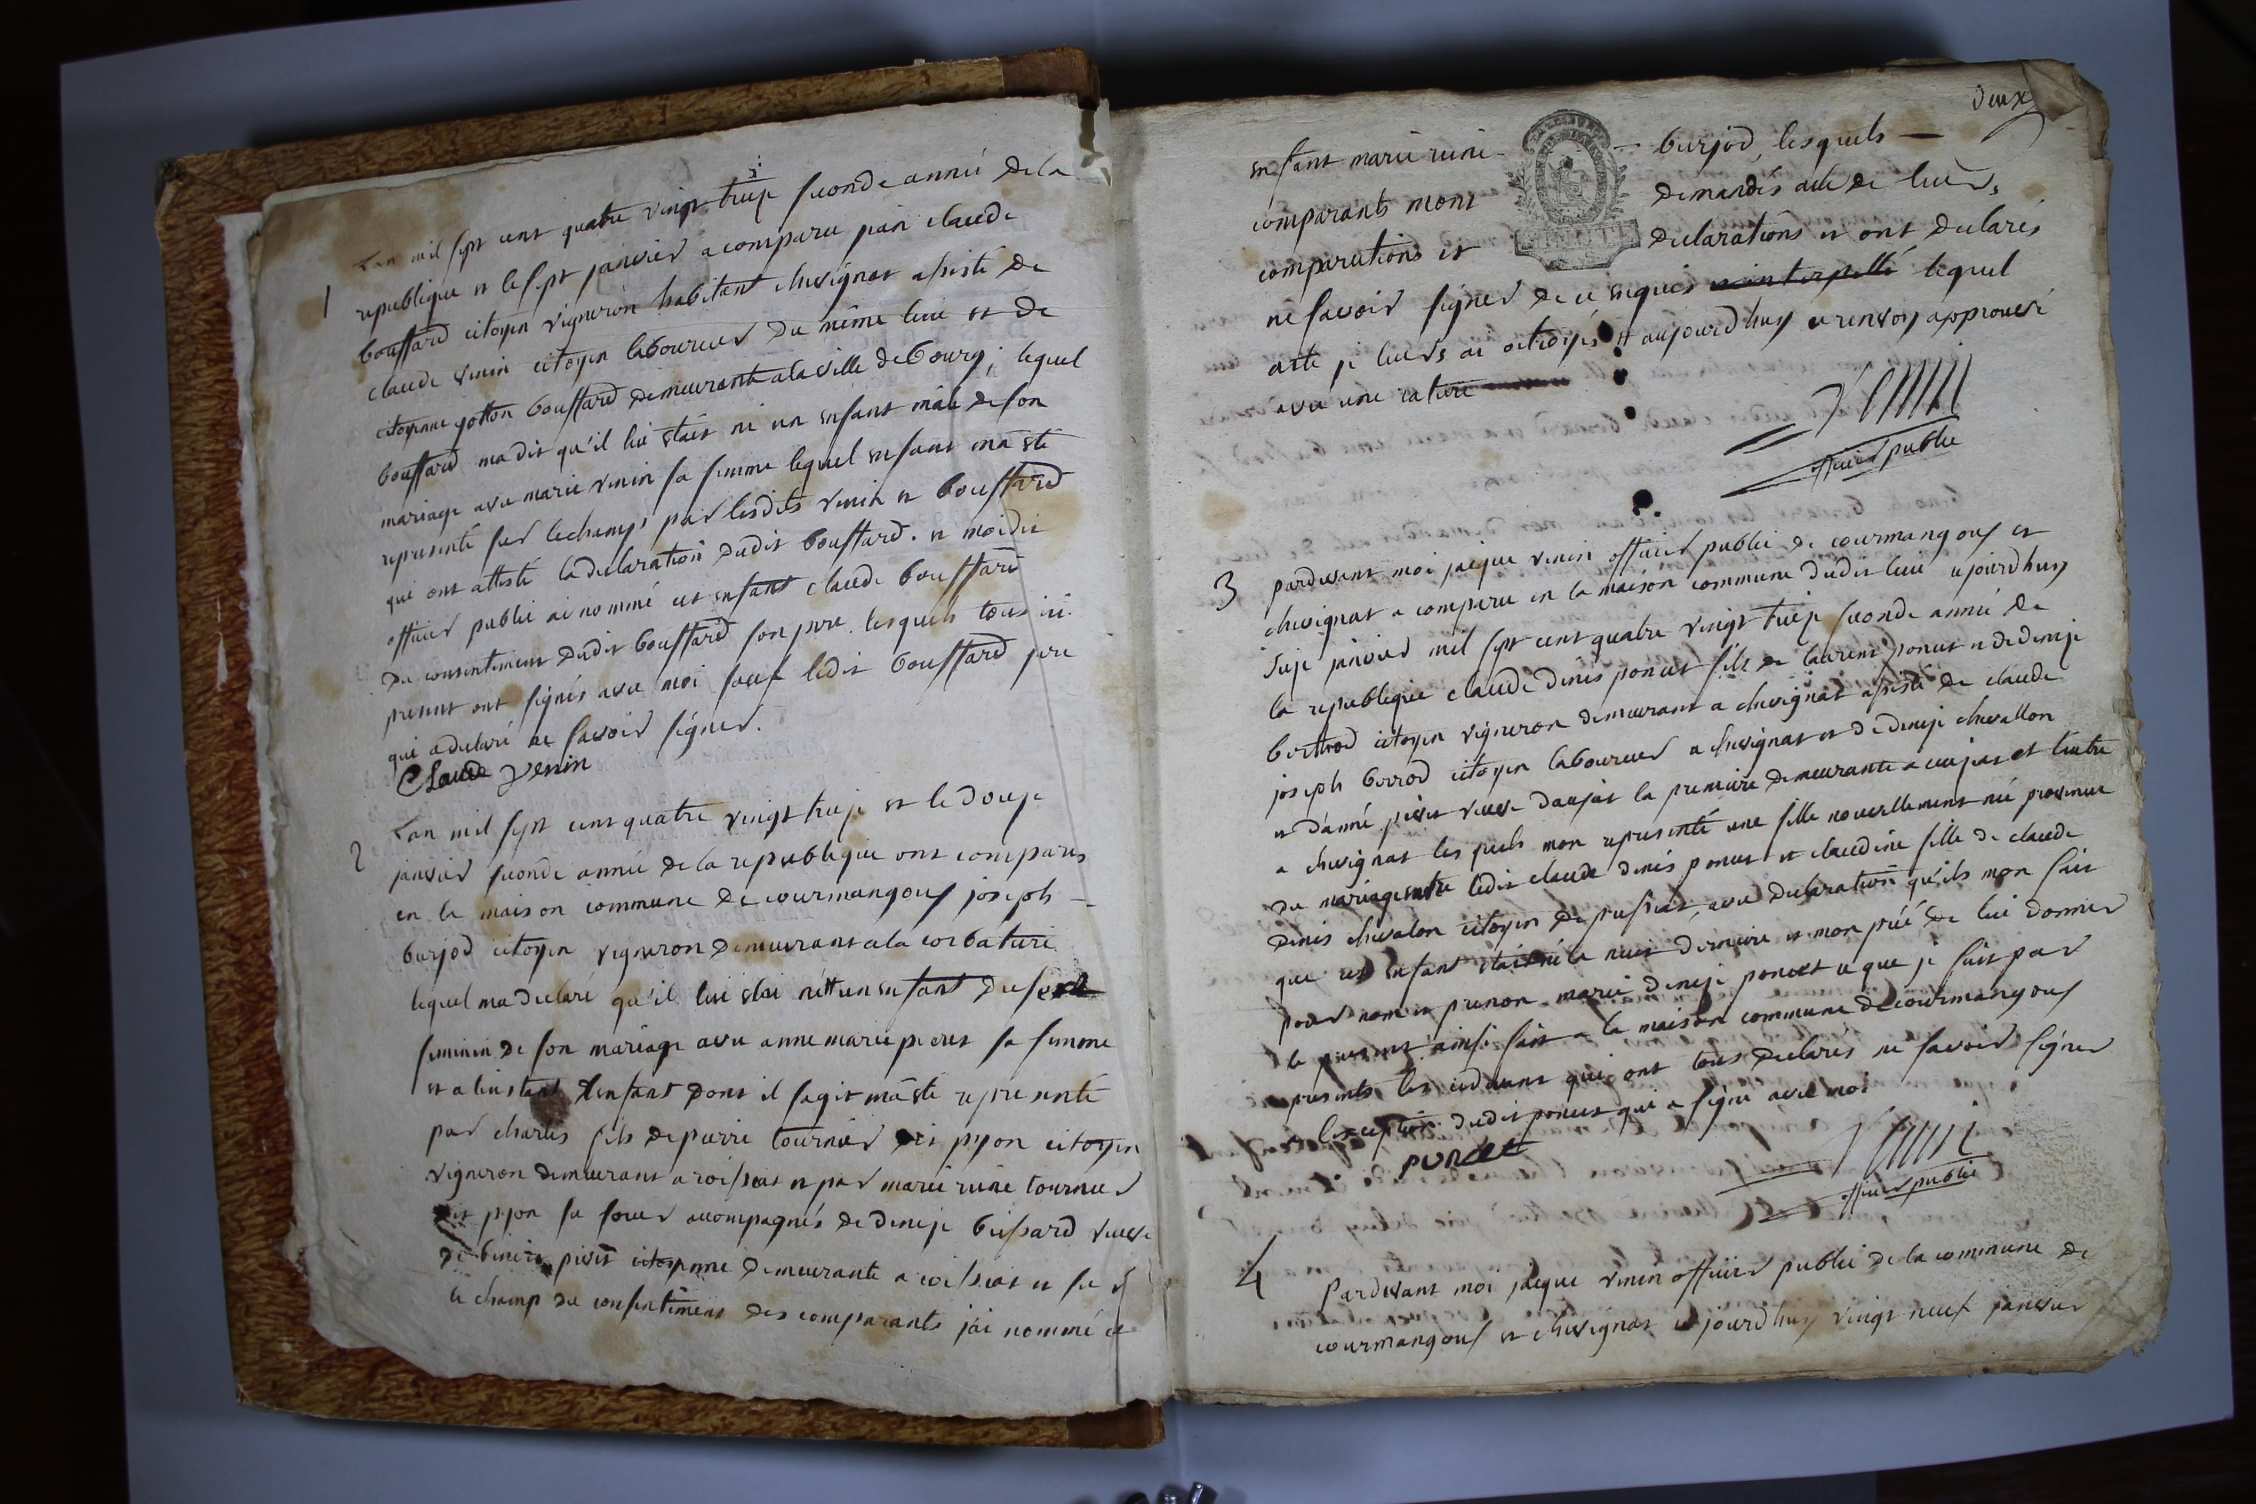 Lan mil sept cent quatre vingt treize seconde anneé de la
1 republique et le sept janvier a comparu jean claude
bouffard citoyen vigneron habitant chevignat assisté de
claude venin citoyen laboureur du même lieu et de
citoyenne gotton bouffard demeurante a la ville de bourg, lequel
bouffard ma dit qu'il lui étoit né un enfant mâle de son
mariage avec marie venin sa femme lequel enfant ma été
representé sur le champs par lesdits venin et bouffard
qui ont attesté la declaration dudit bouffard. et moi dit
officier public ai nommé cet enfant claude bouffard
du consentement dudit bouffard son pere. lesquels tous ici
present ont signés avec moi sauf ledit bouffard pere
qui a declaré ne savoir signer.
Claude Venin
Lan mil sept cent quatre vingt treize et le douze
2 janvier seconde année de la republique ont comparus
en la maison commune de courmangoux joseph
burjod citoyen vigneron demeurant a la corbature
lequel ma declaré qu'il lui étoi un enfant du sexe
feminin de son mariage avec anne marie pevet sa femme
et a linstant lenfant dont il sagit ma été representé
par charles fils de pierre tournier dit pyon citoyen
vigneron demeurant a roissiat et par marie reine tournier
dit pyon sa soeur accompagnés de denize buisard veuve
de benoit pivet citoyenne demeurante a roissiat et sur
le champ du consentement des comparants j'ai nommé ce
deux
enfant marie reine - burjod, lesquels —
comparants mont demandés acte de leurs
comparutions et declarations et ont declarés
ne savoir signer de ce enquis et interpellé lequel
acte je leurs ai octroyés aujourdhuy renvoy approuvé
avec une rature
officier public
3 pardevant moi jacque venin officier public de courmangoux et
chevignat a comparu en la maison commune dudit lieu ajourdhuy
seize janvier mil sept cent quatre vingt treize seconde année de
la republique claude denis poncet fils de laurent poncet et de denize
bertrod citoyen vigneron demeurant a chevignat assisté de claude
joseph berrod citoyen laboureur a chevignat et de denize chevallon
et danne pivet veuve daujat la premiere demeurante a cuijat et lautre
a chevignat les quels mon representé une fille nouvellement née provenue
du mariage entre ledit claude denis poncet et claudine fille de claude
denis chevalon citoyen de pressiat, avec declaration qu'ils mon fait
que cet enfant étoit né la nuit derniere et mon prié de lui donner
pour nom et prenon marie denize poncet ce que je fait par
le present ainsi fait a la maison commune de courmangoux
presents les cidevant qui ont tous declarés ne savoir signer
a lexception dudit poncet qui a signé avec moi
poncet
officier public
4 Pardevant moi jacque venin officier public de la commune de
courmangoux et chevignat ajourdhuy vingt neuf janvier